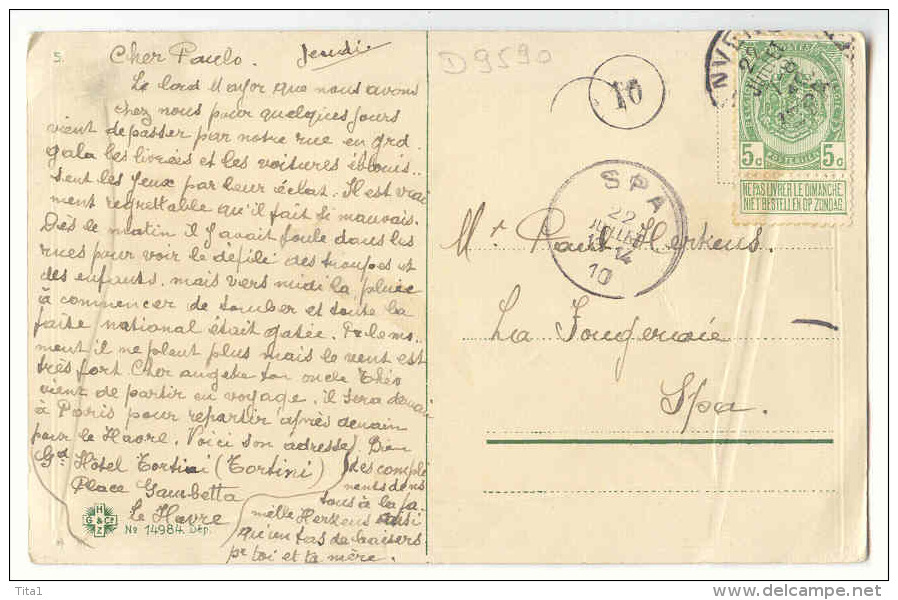 S.
Cher Paulo. Jeudi
Le lord Mayor que nous avons
chez nous pour quelques jours
vient de passer par notre rue en grd
gala les livrées et les voitures éblouis..
sent les yeux par leur éclat. Il est vrai
ment regrettable qu'il fait si mauvais.
Dès le matin il y avait foule dans les
rues pour voir le défilé des troupes et
des enfants, mais vers midi la pluie
à commencer de tomber et toute la
faite national était gatée.
ment il ne pleut plus mais le vent est
très fort. Cher ton oncle Théo
vient de partir en voyage. il sera demain
à Paris pour repartir après demain
pour le Havre. Voici son adresse
Gd Hôtel Tortini (Tortini)
Place Gambetta
Le Havre
Bien
des complé
ments dens
tous à la fa
mille Herkens ainsi
qu'un tas de baisers
pr toi et ta mère.
H G & Co Z
No 14984. Dép.
D9590
10
SPA
22
JUILLET
14
10
5c 5c
POSTES
NE PAS LIVRER LE DIMANCHE
NIET BESTELLEN OP ZONDAG
Mr Paul Herkens
La Fougeraie
Spa.
Tita1
www.delcampe.net